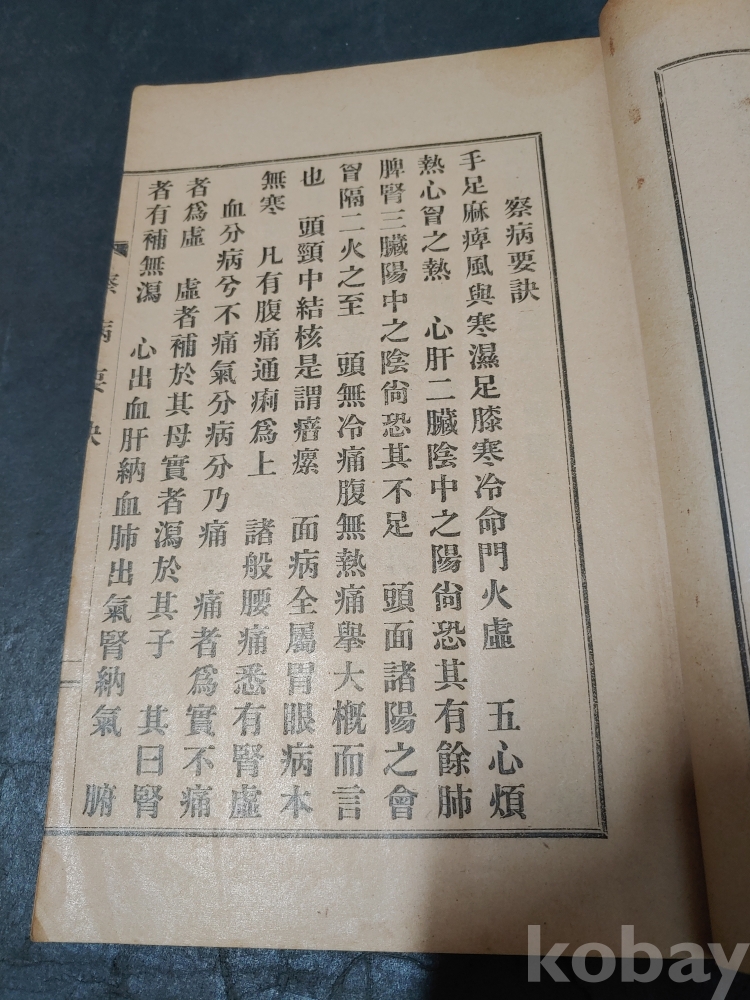 察病要訣
手足麻痺風與寒濕足膝寒冷命門火虛　五心煩
熱心胷之熱　心肝二臟陰中之陽尙恐其有餘肺
脾腎三臟陽中之陰尙恐其不足　頭面諸陽之會
胷隔二火之至　頭無冷痛腹無熱痛擧大槪而言
也　頭頸中結核是謂瘖瘰　面病全屬胃眼病本
無寒　凡有腹痛通痢爲上　諸般腰痛悉有腎虛
血分病兮不痛氣分病分乃痛　痛者爲實不痛
者爲虛　虛者補於其母實者瀉於其子　其曰腎
者有補無瀉　心出血肝納血肺出氣腎納氣　腑
察病要訣
kobay